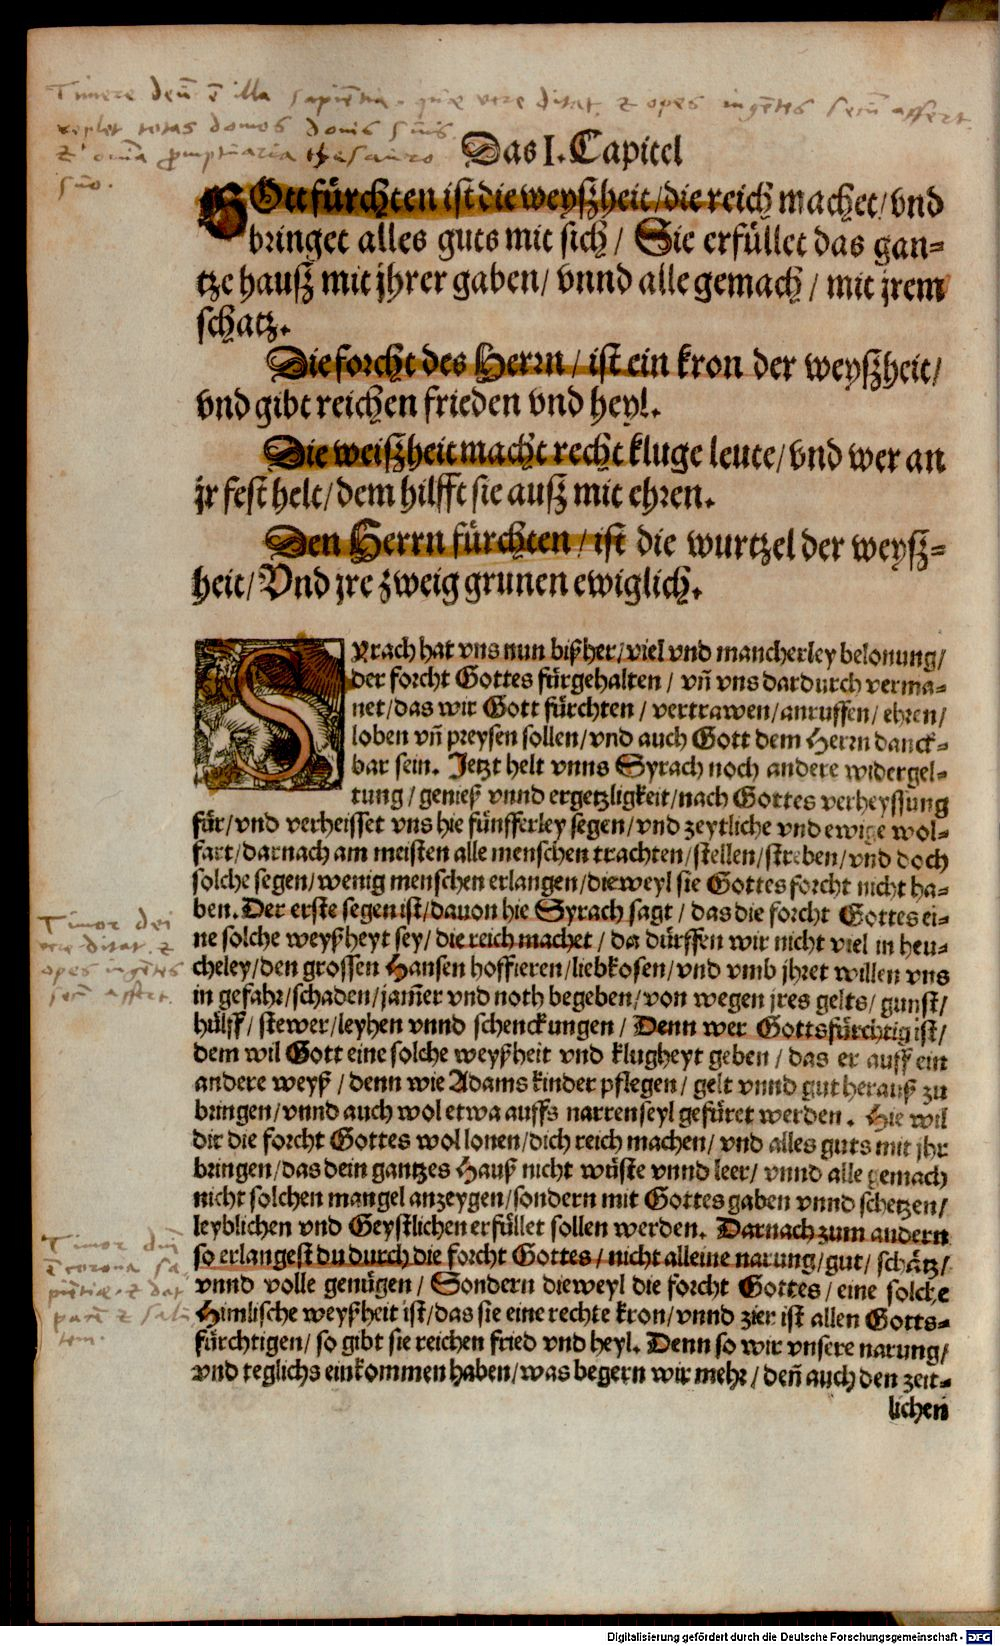 Timere deū ē illa sapiētia. quae vere ditat. & opes ingētes secū affert.
replet totas domos donis suis
& omīa promptuaria thesauro
suo.
Das I. Capitel
GOtt fürchten ist die weyßheit / die reich machet / vnd
bringet alles guts mit sich / Sie erfüllet das gan-
tze hauß mit jhrer gaben / vnnd alle gemach / mit jrem
schatz.
Die forcht des Herrn / ist ein kron der weyßheit /
vnd gibt reichen frieden vnd heyl.
Die weißheit macht recht kluge leute / vnd wer an
jr fest helt / dem hilfft sie auß mit ehren.
Den Herrn fürchten / ist die wurtzel der weyß-
heit / Vnd jre zweig grunen ewiglich.
SYrach hat vns nun bißher / viel vnd mancherley belonung /
der forcht Gottes fürgehalten / vñ vns dardurch verma-
net / das wir Gott fürchten / vertrawen / anruffen / ehren /
loben vñ preysen sollen / vnd auch Gott dem Herrn danck-
bar sein. Jetzt helt vnns Syrach noch andere widergel-
tung / genieß vnnd ergetzligkeit / nach Gottes verheyssung
für / vnd verheisset vns hie fünfferley segen / vnd zeytliche vnd ewige wol-
fart / darnach am meisten alle menschen trachten / stellen / streben / vnd doch
solche segen / wenig menschen erlangen / dieweyl sie Gottes forcht nicht ha-
ben. Der erste segen ist / dauon hie Syrach sagt / das die forcht Gottes ei-
ne solche weyßheyt sey / die reich machet / da dürffen wir nicht viel in heu-
cheley / den grossen Hansen hoffieren / liebkosen / vnd vmb jhret willen vns
in gefahr / schaden / jam̃er vnd noth begeben / von wegen jres gelts / gunst /
hülff / stewer / leyhen vnnd schenckungen / Denn wer Gottsfürchtig ist /
dem wil Gott eine solche weyßheit vnd klugheyt geben / das er auff ein
andere weyß / denn wie Adams kinder pflegen / gelt vnnd gut herauß zu
bringen / vnnd auch wol etwa auffs narrenseyl gefüret werden. Hie wil
dir die forcht Gottes wol lonen / dich reich machen / vnd alles guts mit jhr
bringen / das dein gantzes Hauß nicht wüste vnnd leer / vnnd alle gemach
nicht solchen mangel anzeygen / sondern mit Gottes gaben vnnd schetzen /
leyblichen vnd Geystlichen erfüllet sollen werden. Darnach zum andern
so erlangest du durch die forcht Gottes / nicht alleine narung / gut / schätz /
vnnd volle genügen / Sondern dieweyl die forcht Gottes / eine solche
Himlische weyßheit ist / das sie eine rechte kron / vnnd zier ist allen Gotts-
fürchtigen / so gibt sie reichen fried vnd heyl. Denn so wir vnsere narung /
vnd teglichs einkommen haben / was begern wir mehr / deñ auch den zeit-
lichen
Timor dei
vere ditat. &
opes ingētes
secū affert.
Timor dnī
ē corona sa-
piētiae. & dat
pacē & salu
tem.
Digitalisierung gefördert durch die Deutsche Forschungsgemeinschaft - DFG